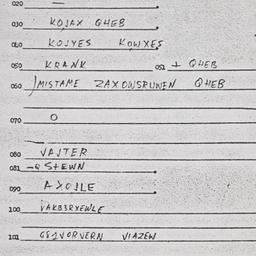 020 —
030 KOJAX QHEB
040 KOJYES KOWXES
050 KRANK 051 + QHEB
060 MISTAME ZAXOWSRUWEN QHEB
070 O
080 VAJTER
081 STEWN
090 AXOJLE
100
101 VIAZEW